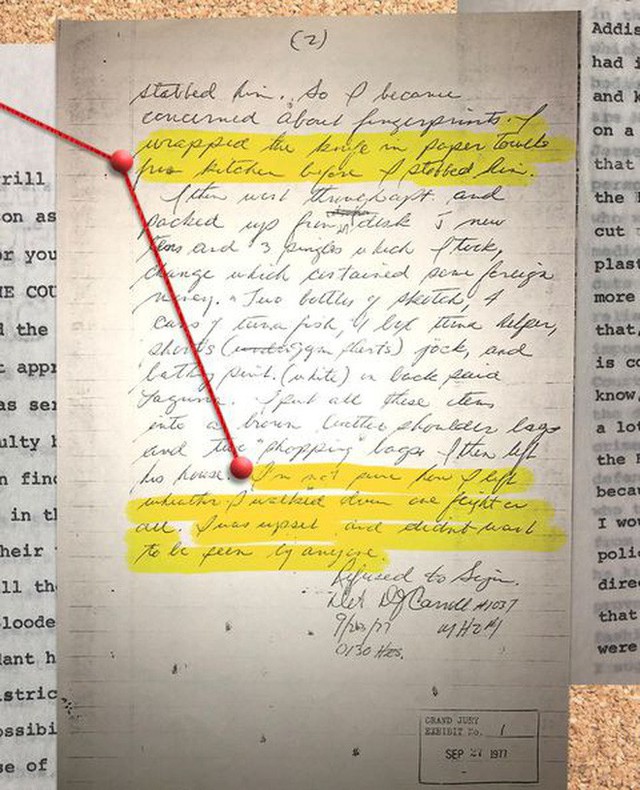 rill
son as
or you
HE COU
d the
t appr
as ser
ulty b
n find
in th
their
ll the
bloode
dant h
istric
ossibi
se of
(2)
stabbed him. So I became
concerned about fingerprints. I
wrapped the knife in paper towels
from kitchen before I stabbed him.
I then went through apt. and
packed up from desk 5 new
tens and 3 singles which I took,
change which contained some foreign
money. Two bottles of sketch, 4
cans of tuna fish, 4 box tuna helper,
shorts (gym shorts) jock, and
shirt. (white) on back said
Laguna. I put all these items
into a brown leather shoulder bag
and two "shopping" bags. I then left
his house. I'm not sure how I left
whether I walked down one flight or
all. I was upset and didnt want
to be seen by anyone.
Refused to Sign.
Det DJ Carroll #1037
9/23/77
0130 Hrs.
GRAND JURY
EXHIBIT No. 1
SEP 27 1977
Addis
had i
and k
on a
that
the
cut
plast
more
that,
is co
know,
a lot
the
becau
I wou
polic
direc
that
were